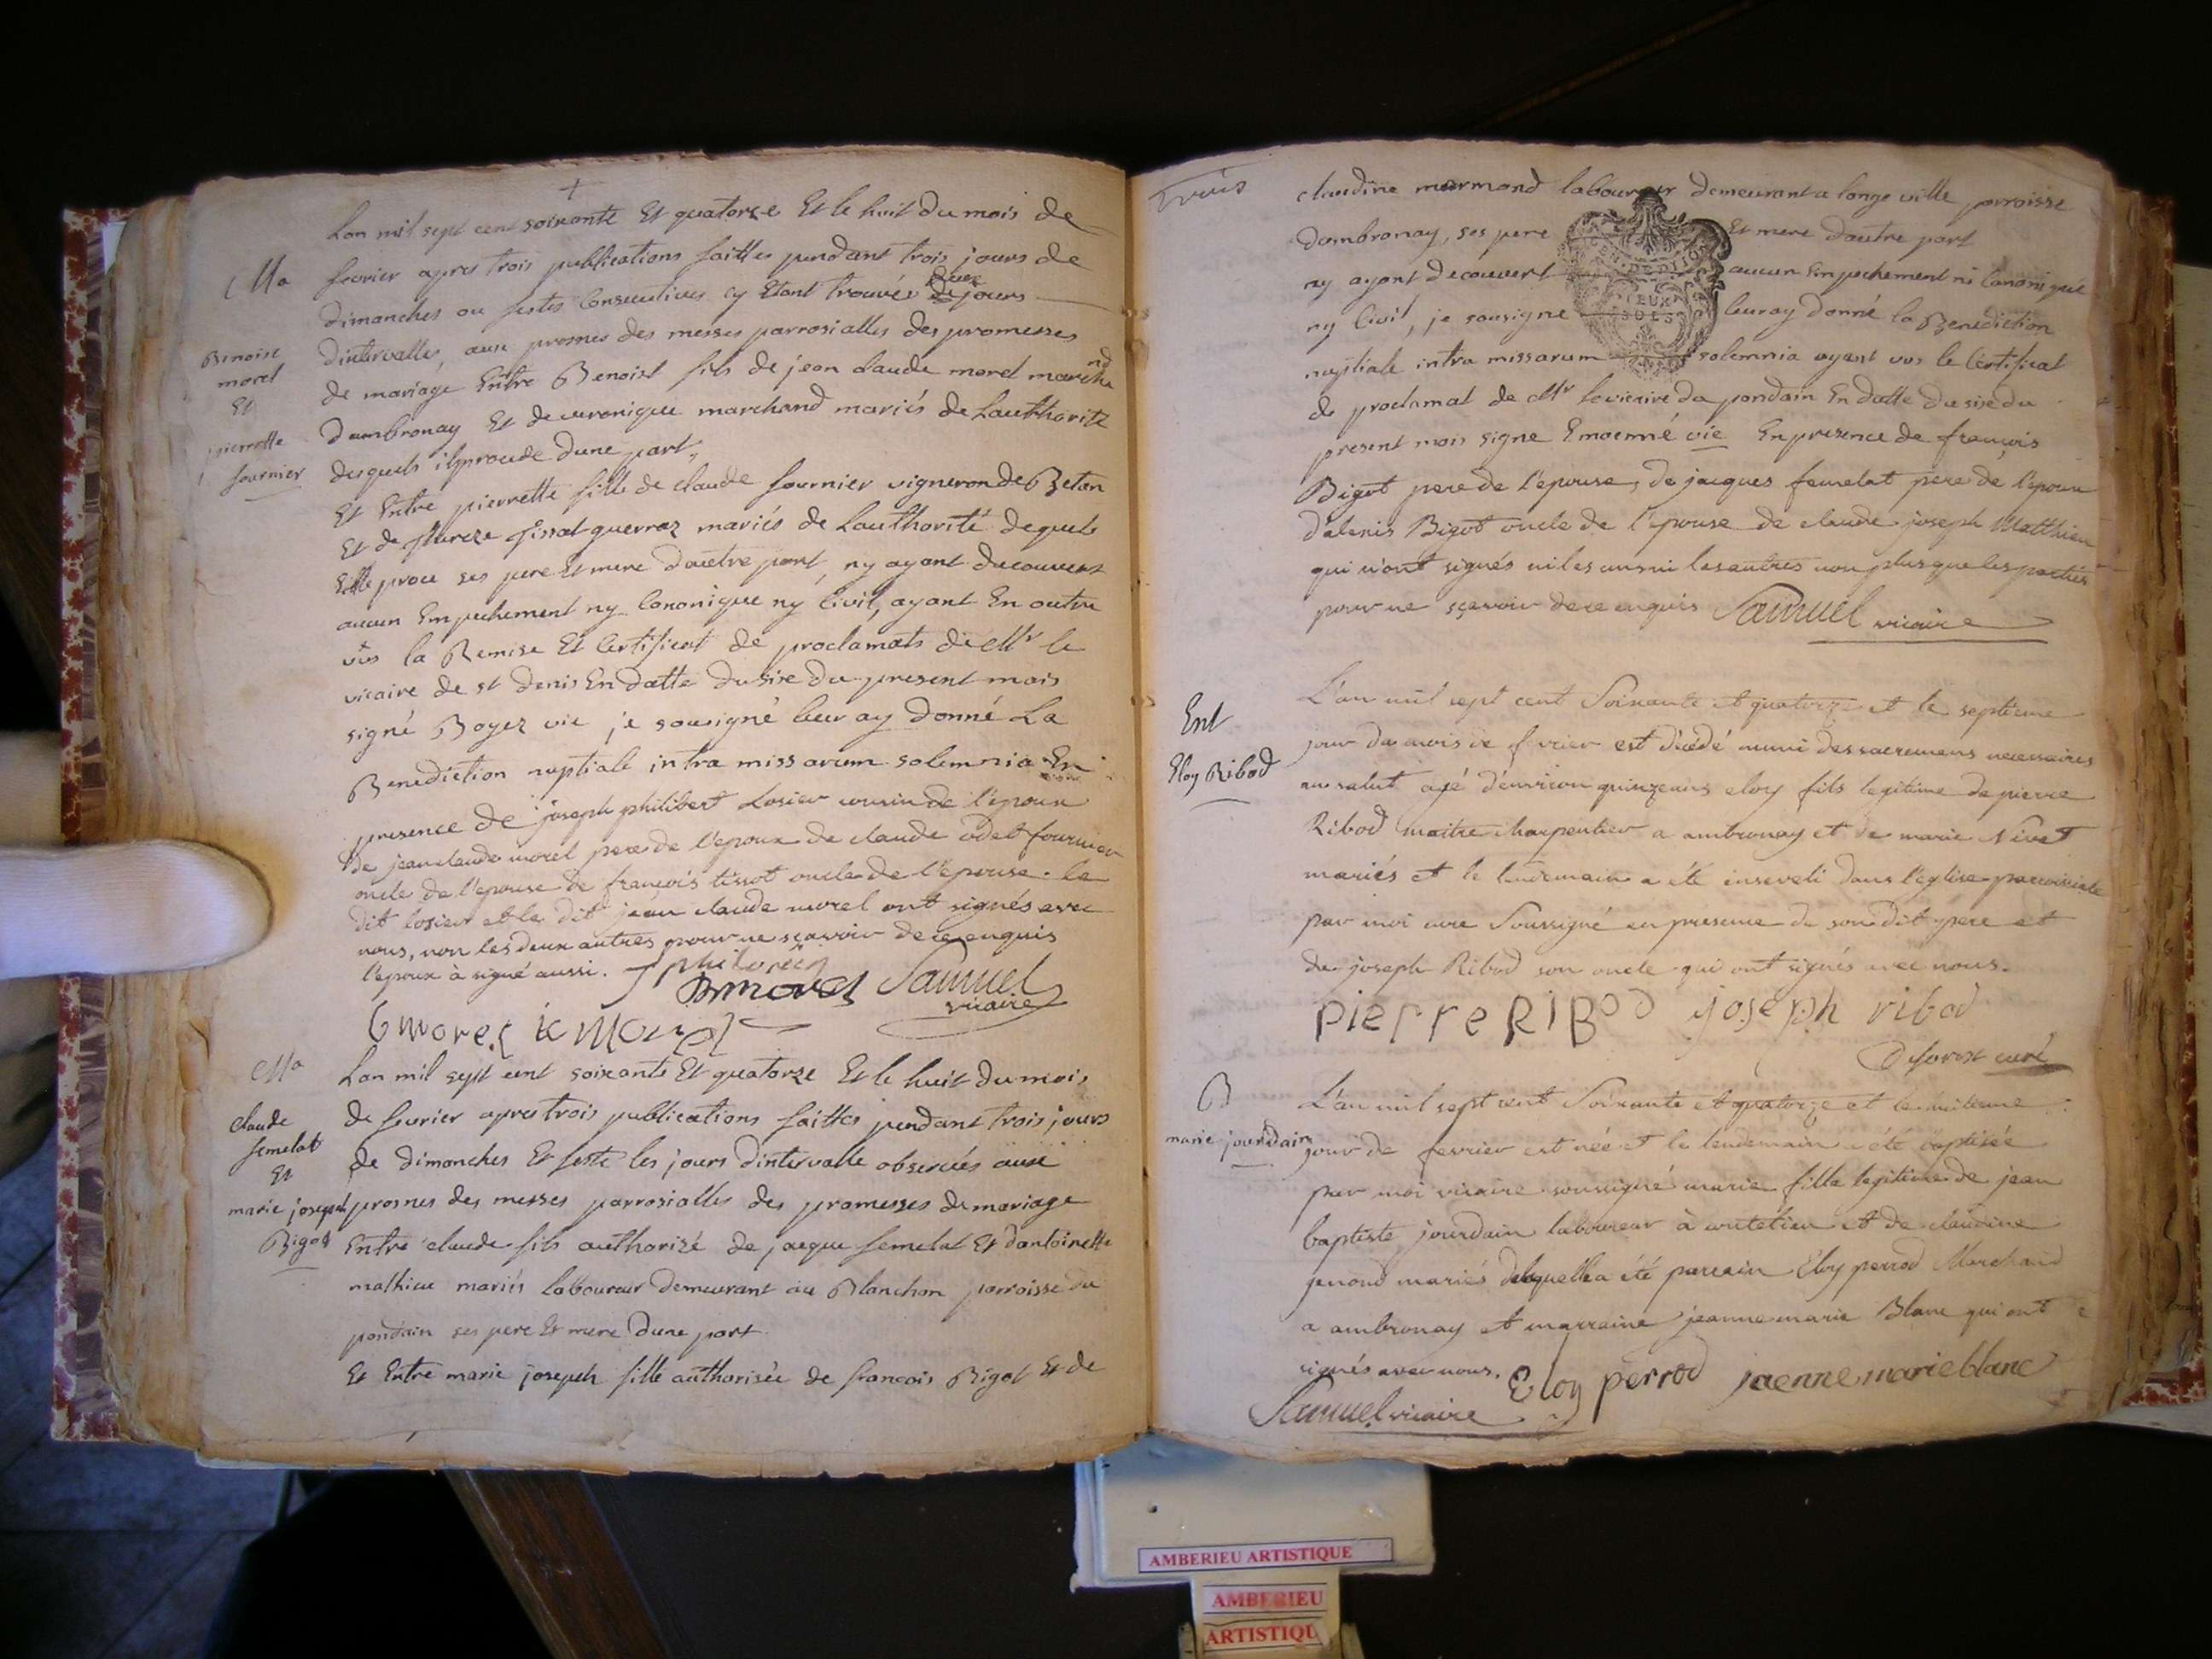 +
Lan mil sept cent soixante Et quatorze Et le huit du mois de
Ma
fevrier apres trois publications faittes pendant trois jours de
dimanches ou festes Consecutives cy Etant trouvée deux jours
Benoise
morel
Et
pierrette
fournier
dintervalles, aux prosnes des messes parrosialles des promesses
de mariage Entre Benoist fils de jean claude morel marchand
dambronay Et de veronique marchand mariés de Lauthorité
desquels il procede dune part,
Et Entre pierrette fille de claude fournier vigneron de Betan
Et de guerraz mariés de Lauthorité dequels
Elle proce ses pere Et mere dautre part, ny ayant decouvert
aucun Empechement ny Canonique ny Civil, ayant En outre
vûs la Remise Et Certificat de proclamats de Mr le
vicaire de st denis En datte du sixe du present mois
signé Boyer vic je sousigné leur ay donné La
Benediction nuptiale intra missarum solemnia En
presence de joseph philibert Losier cousin de l'epoux
de jean claude morel pere de l'epoux de claude odet fournier
oncle de l'epouse de francois tissot oncle de l'epouse. le
dit losier et le dit jean claude morel ont signés avec
nous, non les deux autres pour ne sçavoir de ce enquis
l'epoux à signé aussi.
Samuel
vicaire
Ma
Lan mil sept cent soixante Et quatorze Et le huit du mois
claude
femelat
Et
marie joseph
Bigot
de fevrier apres trois publications faittes pendant trois jours
de dimanches Et feste les jours dintervalle observés aux
prosnes des messes parrosialles des promesses de mariage
Entre claude fils authorizé de jacque femelat Et dantoinette
mathieu mariés laboureur demeurant au Blanchon parroisse du
pondain ses pere Et mere dune part.
Et Entre marie joseph fille authorisée de francois Bigot Et de
trois
claudine marmond laboureur demeurant a longe ville parroisse
dambronay, ses pere Et mere dautre part
ny ayant decouvert aucun Empechement ni Canonique
ny Civil, je sousigne leur ay donné la Benediction
DEUX
SOLS
nuptiale intra missarum solemnia ayant vus le Certificat
de proclamat de Mr le vicaire du pondain En datte du sixe du
present mois signe vic En presence de francois
Bigot pere de l'epouse, de jacques femelat pere de l'epoux
d'alexis Bigot oncle de l'epouse de claude joseph Matthieu
qui n'ont signés ni les uns ni les autres non plus que les parties
pour ne sçavoir de ce enquis Samuel vicaire
Ent
Eloy Ribod
L'an mil sept cent Soixante et quatorze et le septieme
jour du mois de fevrier est décédé muni des sacremens necessaires
au salut agé d'environ quinze ans eloy fils legitime de pierre
Ribod maitre charpentier a ambronay et de marie Nivet
mariés et le lendemain a été inseveli dans l'eglise parroissiale
par moi cure Soussigné en presence de son dit pere et
de joseph Ribod son oncle qui ont signés avec nous.
pierre RiBod joseph ribod
deforest curé
B
marie jourdain
L'an mil sept cent Soixante et quatorze et le huitieme
jour de fevrier est née et le lendemain a été baptisée
par moi vicaire soussigné marie fille legitime de jean
baptiste jourdain laboureur à et de claudine
genoud mariés delaquelle a été parrain Eloy perrod Marchand
a ambronay et marraine jeanne marie Blanc qui ont
signés avec nous. Eloy perrod jaenne marie blanc
Samuel vicaire
AMBERIEU ARTISTIQUE
AMBERIEU
ARTISTIQU